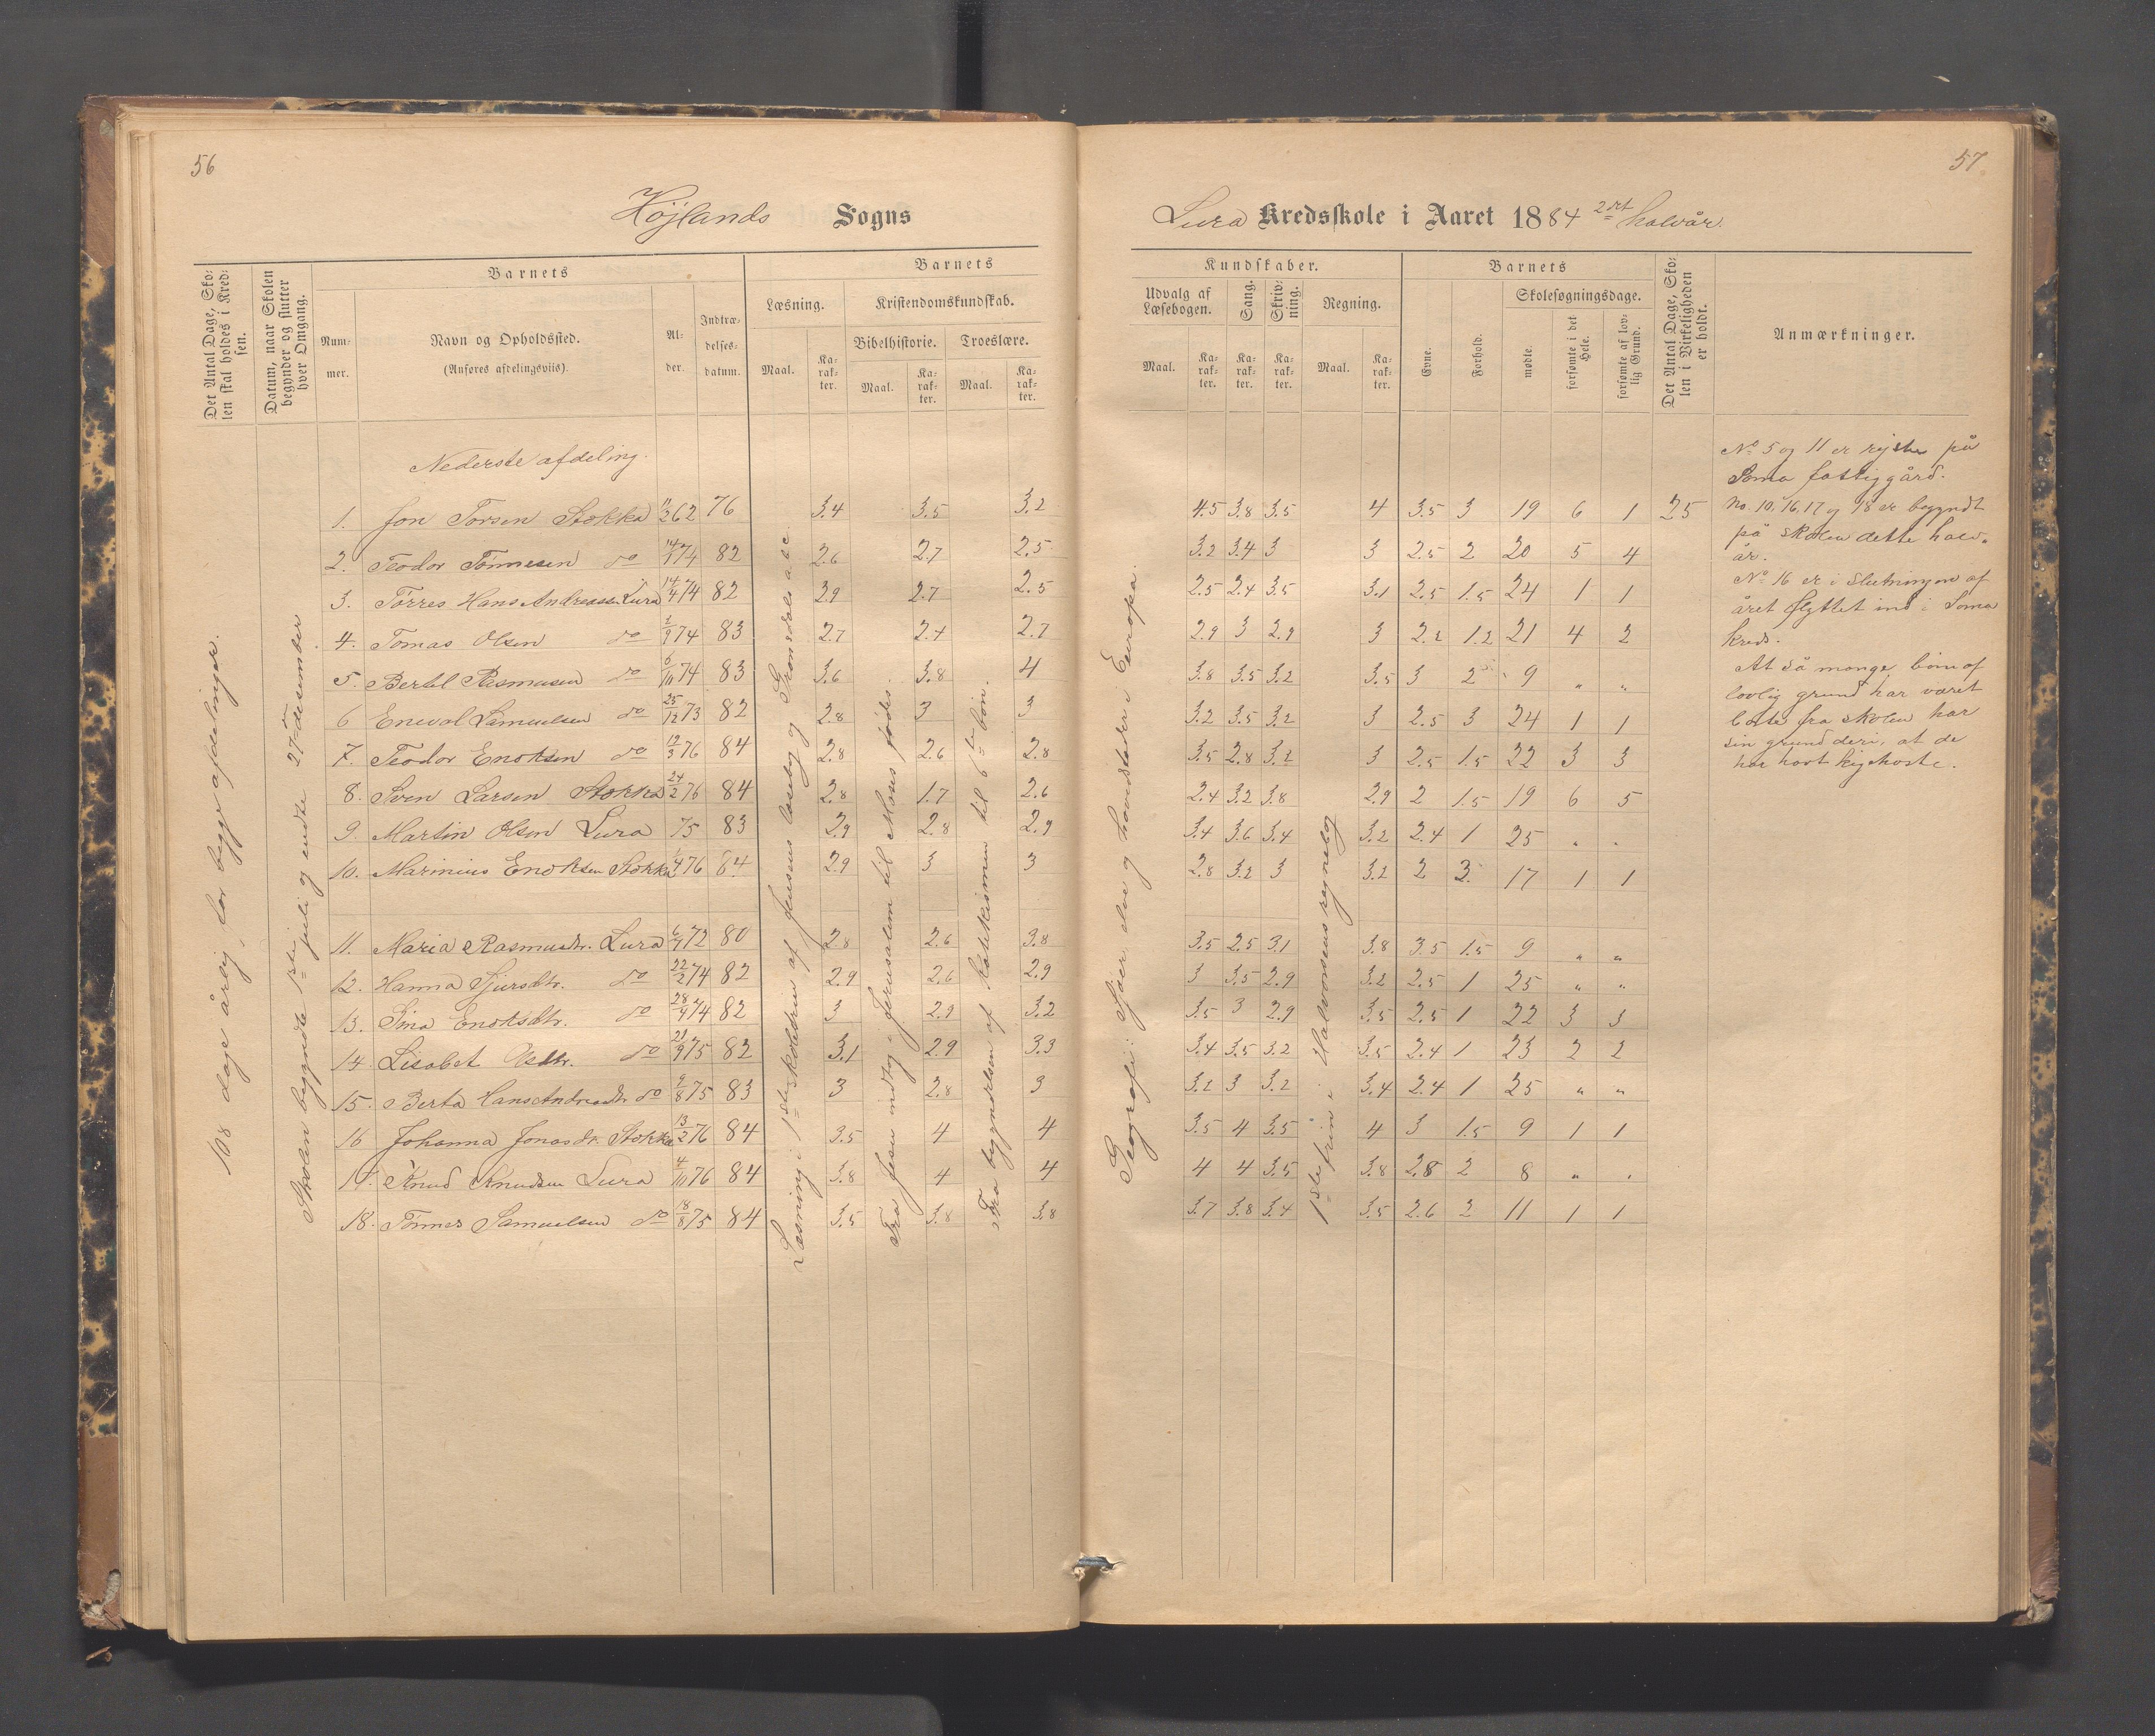 56
Højlands Sogns
Det Antal Dage, Sko-
len skal holdes i Kred-
sen.
Datum, naar Skolen
begynder og slutter
hver Omgang.
Barnets
Num-
mer.
Navn og Opholdssted.
(Anføres afdelingsviis).
Al-
der.
Indtræ-
delses-
datum.
Barnets
Læsning.
Kristendomskundskab.
Bibelhistorie. Troeslære.
Maal. Ka-
rak-
ter.
Maal. Ka-
rak-
ter.
Maal. Ka-
rak-
ter.
108 dage årlig for begge afdelinger.
Skolen begyndte 1ste juli og endte 27de desember
Læsning i 1ste skoletrin af Jensens læsebog og
Fra Jesu indtog i Jerusalem til Moses fødes.
Fra begyndelsen af katekismen til 6te bøn.
Nederste afdeling.
1. Jon Torsen Stokka 62 76 3.4 3.5 3.2
2. Teodor Tønnesen do 74 82 2.6 2.7 2.5
3. Tørres Hans Andreassen Lura 14/4 74 82 2.9 2.7 2.5
4. Tomas Olsen do 74 83 2.7 2.4 2.7
5. Bertel Rasmusen do 6/10 74 83 3.6 3.8 4
6 Enevol Samuelsen do 25/12 73 82 2.8 3 3
7. Teodor Enoksen do 12/3 76 84 2.8 2.6 2.8
8. Sven Larsen Stokka 24/2 76 84 2.8 1.7 2.6
9. Martin Olsen Lura 75 83 2.9 2.8 2.9
10. Marinius Enoksen Stokka 76 84 2.9 3 3
11. Maria Rasmusdtr. Lura 72 80 2.8 2.6 3.8
12. Hanna Sjursdtr. do 22/2 74 82 2.9 2.6 2.9
13. Sina Enoksdtr. do 74 82 3 2.9 3.2
14. Lisabet Olsdtr. do 21/9 75 82 3.1 2.9 3.3
15. Berta Hans Andreasdtr do 2/8 75 83 3 2.8 3
16 Johanna Jonasdtr. Stokka 13/2 76 84 3.5 4 4
17. Knud Knudsen Lura 4/10 76 84 3.8 4 4
18. Tønnes Samuelsen do 18/8 75 84 3.5 3.8 3.8
57.
Lura Kredsskole i Aaret 1884 2det halvår.
Kundskaber.
Udvalg af
Læsebogen.
Sang.
Skriv-
ning.
Regning.
Maal. Ka-
rak-
ter.
Ka-
rak-
ter.
Ka-
rak-
ter.
Maal. Ka-
rak-
ter.
Barnets
Evne.
Forhold.
Skolesøgningsdage.
mødte.
forsømte i det
Hele.
forsømte af lov-
lig Grund.
Det Antal Dage, Sko-
len i Virkeligheden
er holdt.
Anmærkninger.
Geografi: Sjøer, elve og hovedstæder i Europa.
1ste trin i Halvorsens regnebog
4.5 3.8 3.5 4 3.5 3 19 6 1 25
3.2 3.4 3 3 2.5 2 20 5 4
2.5 2.4 3.5 3.1 2.5 1.5 24 1 1
2.9 3 2.9 3 2.2 1.2 21 4 2
3.8 3.5 3.2 3.5 3 2 9 " "
3.2 3.5 3.2 3 2.5 3 24 1 1
3.5 2.8 3.2 3 2.5 1.5 22 3 3
2.4 3.2 3.8 2.9 2 1.5 19 6 5
3.4 3.6 3.4 3.2 2.4 1 25 " "
2.8 3.2 3 3.2 2 3. 17 1 1
3.5 2.5 3.1 3.8 3.5 1.5 9 " "
3 3.5 2.9 3.2 2.5 1 25 " "
3.5 3 2.9 3.5 2.5 1 22 3 3
3.4 3.5 3.2 3.5 2.4 1 23 2 2
3.2 3 3.2 3.4 2.4 1 25 " "
3.5 4 3.5 4 3 1.5 9 1 1
4 4 3.5 3.8 2.8 2 8 " "
3.7 3.8 3.4 3.5 2.6 2 11 1 1
No 5 og 11 er rejste på
Soma fattiggård.
No. 10, 16, 17 og 18 er begyndt
på skolen dette halv-
år.
No 16 er i slutningen af
året flyttet ind i Soma
kreds.
At så mange børn af
lovlig grund har været
borte fra skolen har
sin grund deri, at de
har havt kighoste.